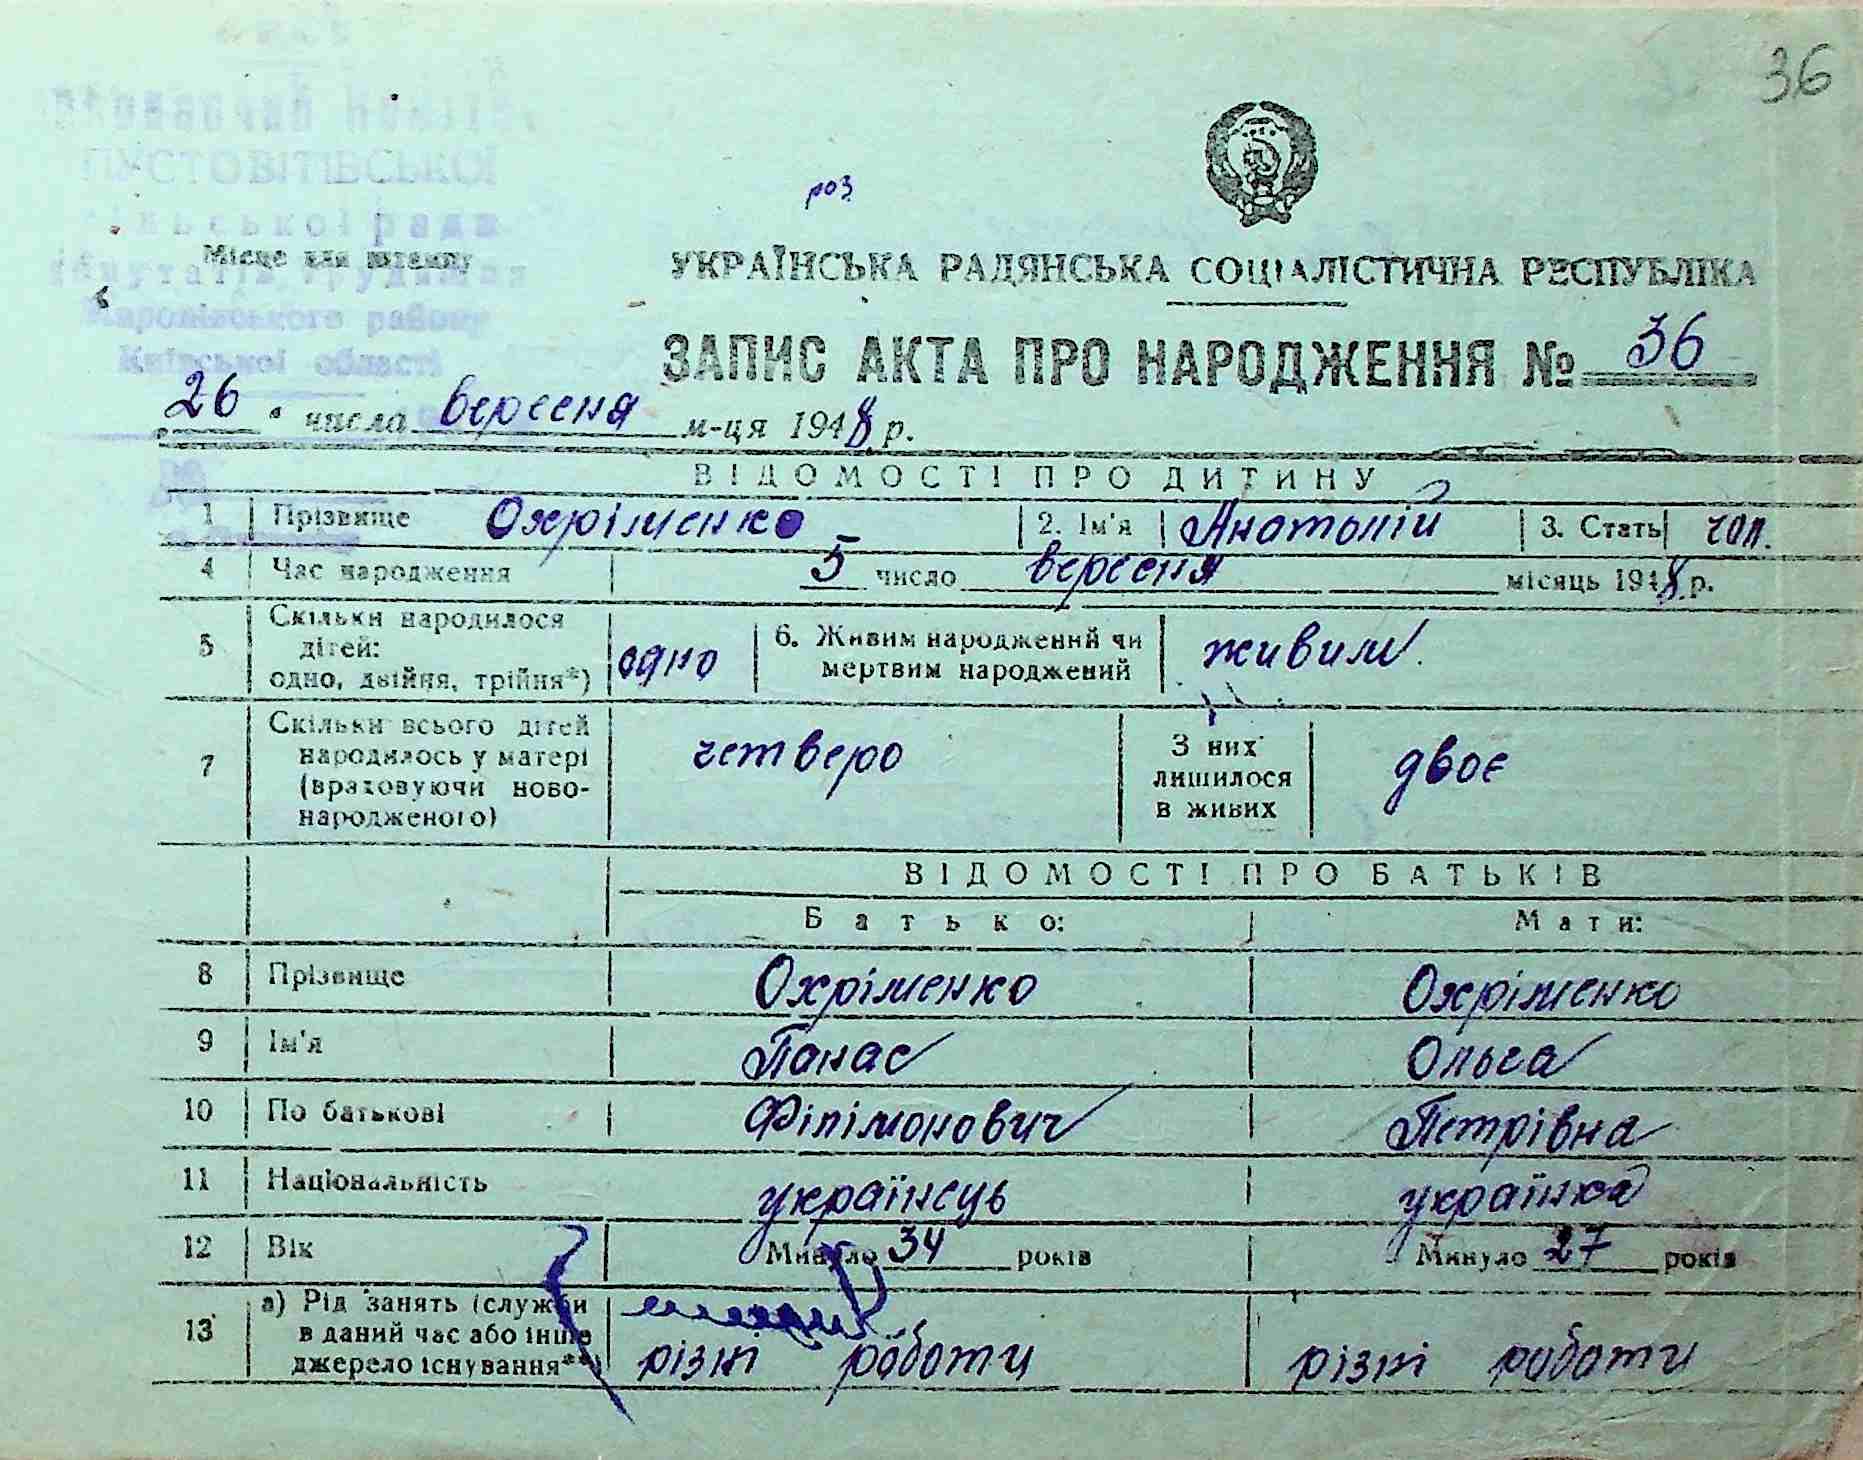 36
ПУСТОВІТІВСЬКОЇ
сільської ради
Місце для штемпу
району
Київської області
роз
УКРАЇНСЬКА РАДЯНСЬКА СОЦІАЛІСТИЧНА РЕСПУБЛІКА
ЗАПИС АКТА ПРО НАРОДЖЕННЯ № 36
26 числа вересня м-ця 1948 р.
ВІДОМОСТІ ПРО ДИТИНУ
1 Прізвище Охріменко 2. Ім'я Анатолій 3. Стать чол.
4 Час народження 5 число вересня місяць 1948 р.
5 Скільки народилося дітей: одно, двійня, трійня*) одно 6. Живим народжений чи мертвим народжений живим
7 Скільки всього дітей народилось у матері (враховуючи ново-народженого) четверо З них лишилося в живих двоє
ВІДОМОСТІ ПРО БАТЬКІВ
Батько: Мати:
8 Прізвище Охріменко Охріменко
9 Ім'я Панас Ольга
10 По батькові Філімонович Петрівна
11 Національність українець українка
12 Вік Минуло 34 років Минуло 27 років
13 а) Рід занять (служби в даний час або інше джерело існування**) різні роботи різні роботи